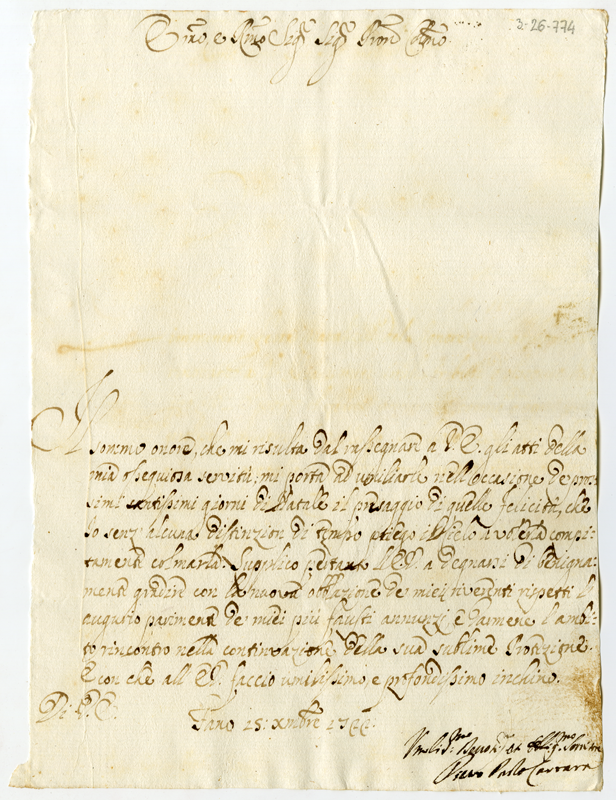 3-26-774
Emo, e Rmo Sigr Sigr Pron Colmo
Il sommo onore, che mi risulta dal rassegnare a V. E. gli atti della
mia ossequiosa servitù, mi porta ad umiliarle nell'occasione de pros-
simi santissimi giorni di Natale il presaggio di quelle felicità, che
Io senz'alcuna distinzion di tempo priego il Cielo a volerla compi-
tamente colmarla. Supplico pertanto l'E. V. a degnarsi di benigna-
mente gradire con la nuova oblazione de miei riverenti rispetti l'
augurio parimenti de miei più fausti annunzi, e darmene l'ambi-
to rincontro nella continuazione della sua sublime Protezione.
E con che all'E. V. faccio umilissimo, e profondissimo inchino.
Di V. E.
Fano 15: Xmbre 1722:
Umilis.mo Devot.mo et Obblig.mo
Paolo Carrara